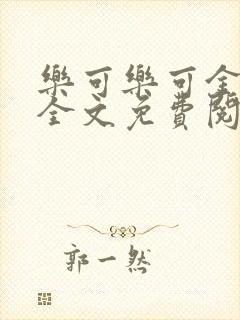 樂可樂可全
全文免費閱
郭一然